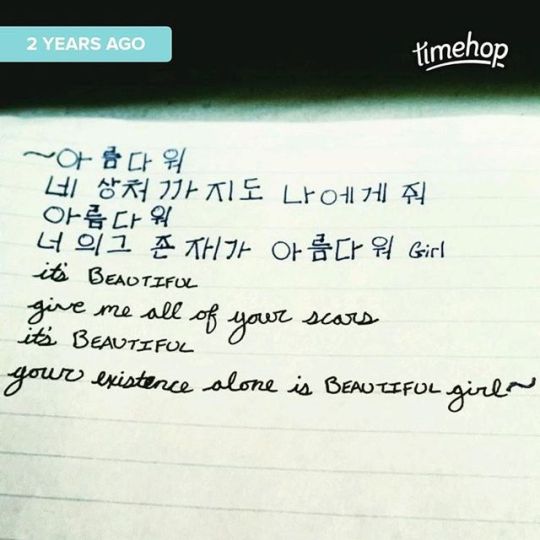 2 YEARS AGO
timehop
~아름다워
네 상처까지도 나에게 줘
아름다워
너의 그 존재가 아름다워 Girl
it's BEAUTIFUL
give me all of your scars
it's BEAUTIFUL
your existence alone is BEAUTIFUL girl~